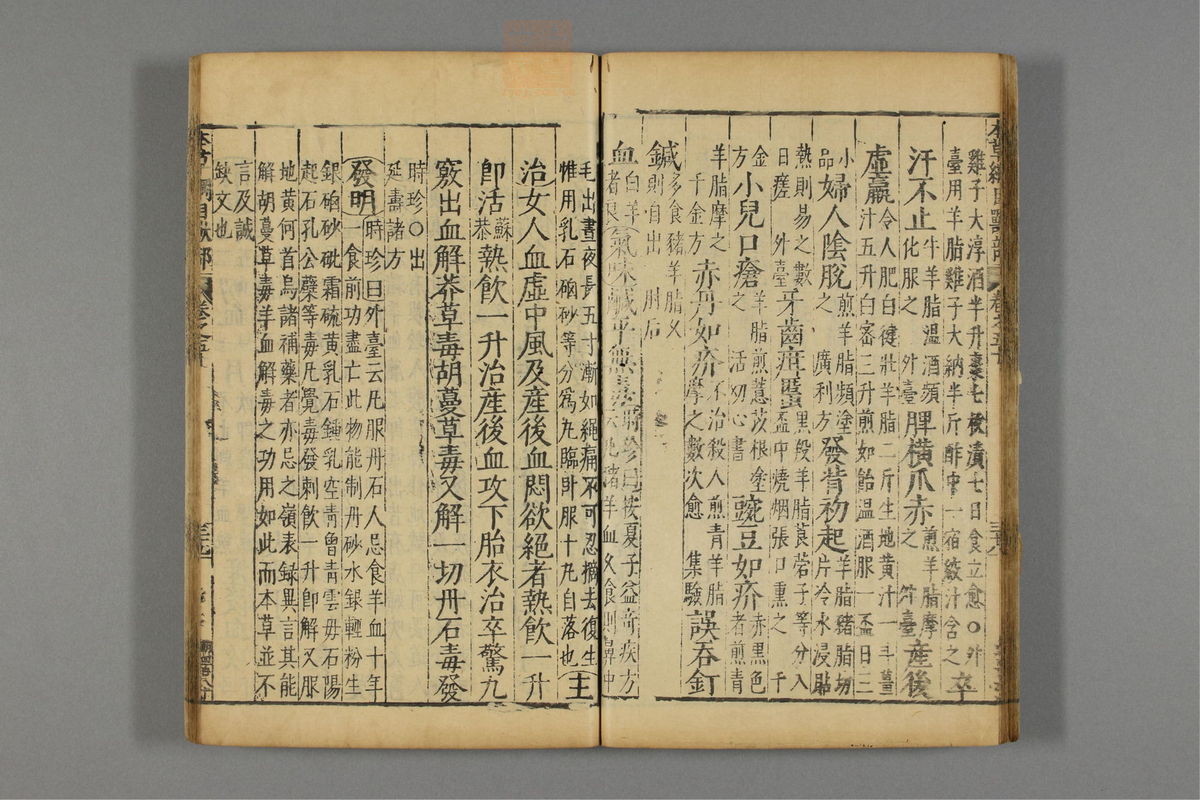 本草綱目獸部 卷之五十
雞子大淳酒半升棗七枚漬七日食立愈○外臺用羊脂雞子大納半斤酢中一宿絞汁含之 卒
汗不止 牛羊脂溫酒頻化服之 外臺 脾橫爪赤 煎羊脂摩之 外臺 產後
虛羸 令人肥白健壯羊脂二斤生地黃汁一斗薑汁五升白蜜三升煎如飴溫酒服一盃日三
小品 婦人陰脫 煎羊脂頻塗之 廣利方 發背初起 羊脂豬脂切片冷水浸貼
熱則易之數日瘥 外臺 牙齒疳䘌 黑羖羊脂莨菪子等分入盃中燒烟張口熏之 千
金方 小兒口瘡 羊脂煎薏苡根塗之 活幼心書 豌豆如疥 赤黑色者煎青
羊脂摩之 千金方 赤丹如疥 不治殺人煎青羊脂摩之數次愈 集驗 誤吞釘
鍼 多食豬羊脂久則自出 肘后
血 白羊者良 氣味 鹹平無毒 時珍曰按夏子益奇疾方云凡豬羊血久食則鼻中
毛出晝夜長五寸漸如繩痛不可忍摘去復生惟用乳石硇砂等分爲丸臨卧服十丸自落也 主
治女人血虛中風及產後血悶欲絕者熱飲一升
即活 蘇恭 熱飲一升治產後血攻下胎衣治卒驚九
竅出血解莽草毒胡蔓草毒又解一切丹石毒發
時珍○出延壽諸方
發明 時珍曰外臺云凡服丹石人忌食羊血十年一食前功盡亡此物能制丹砂水銀輕粉生
銀硇砂砒霜硫黃乳石鍾乳空青曾青雲毋石陽
起石孔公蘖等毒凡覺毒發刺飲一升即解又服
地黃何首烏諸補藥者亦忌之嶺表録異言其能
解胡蔓草毒羊血解毒之功用如此而本草並不
言及誠
缺文也
本草綱目獸部 卷之五十